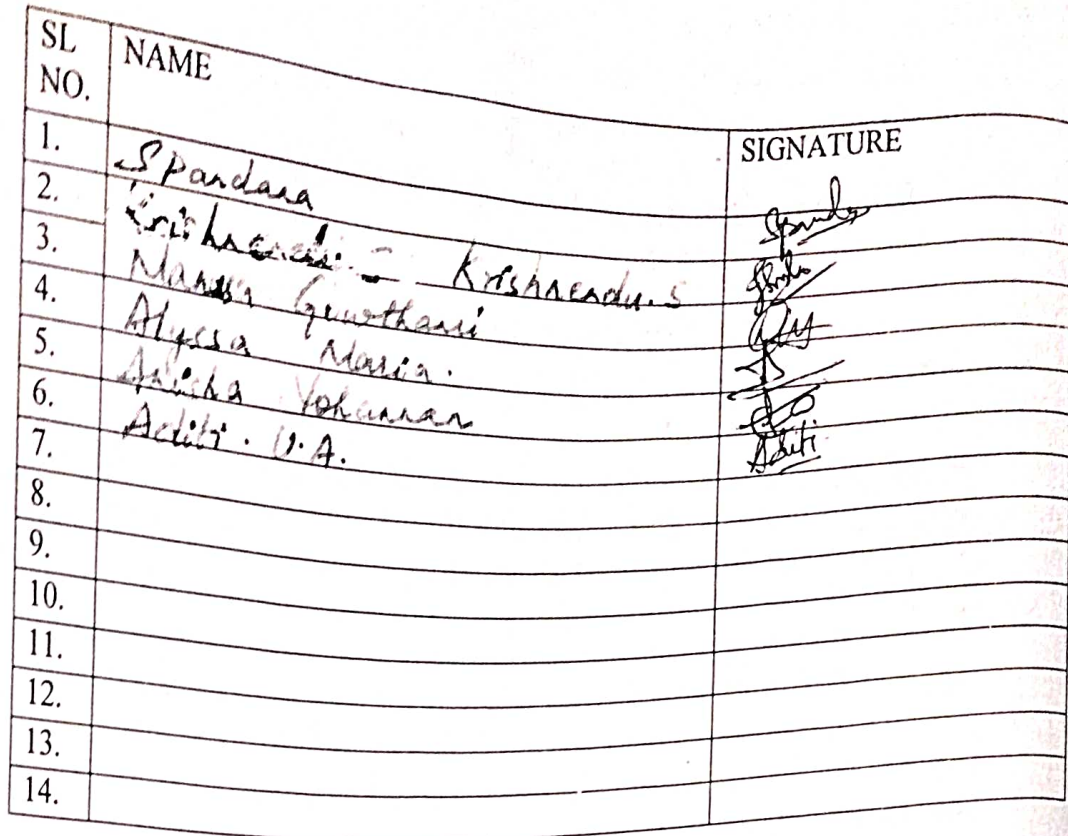 SL NO. NAME SIGNATURE
1. Spandana
2. Krishnendu. S Krishnendu. S
3. Manasa Gowthami
4. Alyssa Maria.
5. Anisha Yohannan
6. Aditi. V.A. Aditi
7.
8.
9.
10.
11.
12.
13.
14.